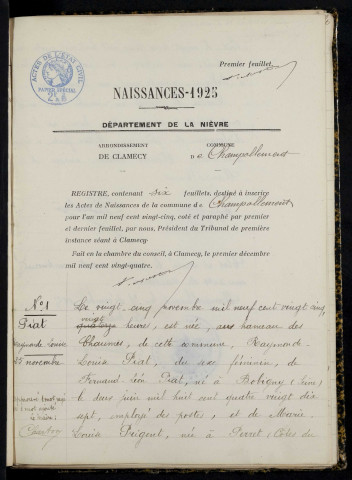 Premier feuillet.
ACTES DE L'ETAT CIVIL
PAPIER SPECIAL
NAISSANCES-1925
DÉPARTEMENT DE LA NIÈVRE
ARRONDISSEMENT
DE CLAMECY
COMMUNE
De Champallement
REGISTRE, contenant six feuillets, destiné à inscrire
les Actes de Naissances de la commune de Champallement
pour l'an mil neuf cent vingt-cinq, coté et paraphé par premier
et dernier feuillet, par nous, Président du Tribunal de première
instance séant à Clamecy.
Fait en la chambre du conseil, à Clamecy, le premier décembre
mil neuf cent vingt-quatre.
No 1
Piat
Raymonde Louise
25 novembre
Le vingt cinq novembre mil neuf cent vingt cinq
vingt
heures, est née, au hameau des
Chaumes, de cette commune, Raymonde-
Louise Piat, du sexe féminin, de
Fernand Léon Piat, né à Bobigny (Seine)
le dix juin mil huit cent quatre vingt dix
sept, employé des postes, et de Marie-
Louise Prigent, née à Perret (Côtes du